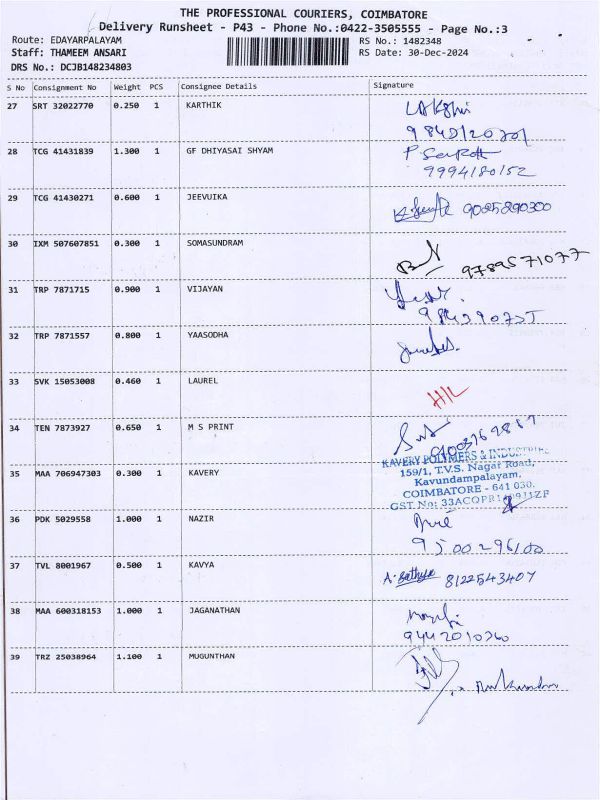 THE PROFESSIONAL COURIERS, COIMBATORE
Delivery Runsheet - P43 - Phone No.:0422-3505555 - Page No.:3
Route: EDAYARPALAYAM
RS No.: 1482348
Staff: THAMEEM ANSARI
RS Date: 30-Dec-2024
DRS No.: DCJB148234803
S No Consignment No Weight PCS Consignee Details Signature
27 SRT 32022770 0.250 1 KARTHIK
28 TCG 41431839 1.300 1 GF DHIYASAI SHYAM
9994180152
29 TCG 41430271 0.600 1 JEEVUIKA
30 IXM 507607851 0.300 1 SOMASUNDRAM
9789571077
31 TRP 7871715 0.900 1 VIJAYAN
32 TRP 7871557 0.800 1 YAASODHA
33 SVK 15053008 0.460 1 LAUREL
H/L
34 TEN 7873927 0.650 1 M S PRINT
KAVERY POLYMERS & INDUSTRIES
159/1, T.V.S. Nagar Road,
35 MAA 706947303 0.300 1 KAVERY
Kavundampalayam,
COIMBATORE - 641 030.
GST.No: 
36 PDK 5029558 1.000 1 NAZIR
37 TVL 8001967 0.500 1 KAVYA A. Sathya 8122543407
38 MAA 600318153 1.000 1 JAGANATHAN
39 TRZ 25038964 1.100 1 MUGUNTHAN